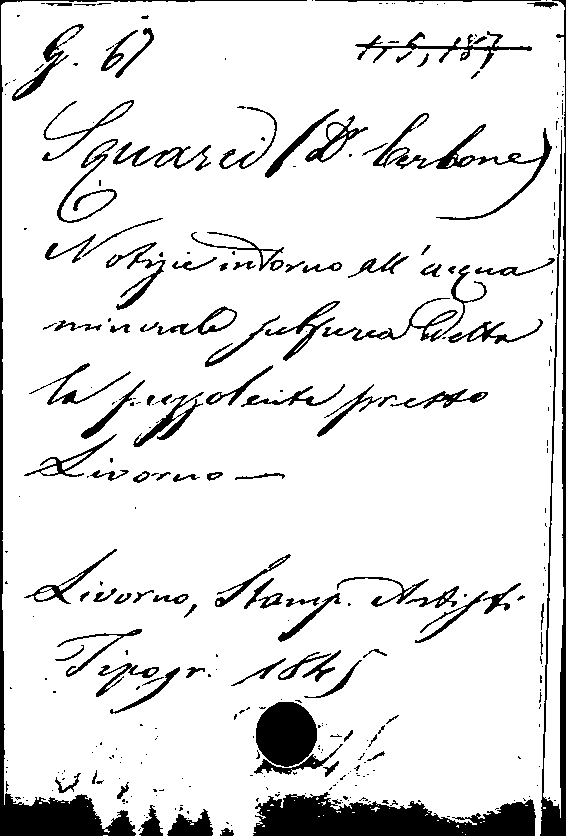 G. 67 1, 5, 187
Squarci (Dr. Carbone)
Notizie intorno all'acqua
minerale sulfurea detta
la puzzolente presso
Livorno —
Livorno, Stamp. Artisti
Tipogr. 1845